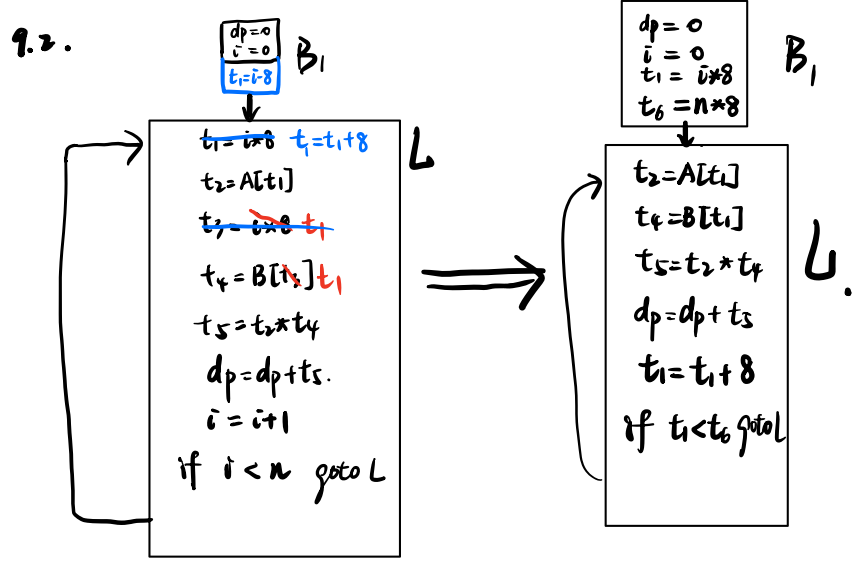 9.2.
dp=0
i=0
t₁=i-8
B₁
t₁=i*8 t₁=t₁+8
L
t₂=A[t₁]
t₃=i*8 t₁
t₄=B[t₃]t₁
t₅=t₂*t₄
dp=dp+t₅.
i=i+1
if i<n goto L
dp=0
i=0
t₁=i*8
t₆=n*8
B₁
t₂=A[t₁]
t₄=B[t₁]
t₅=t₂*t₄
L.
dp=dp+t₅
t₁=t₁+8
if t₁<t₆ goto L